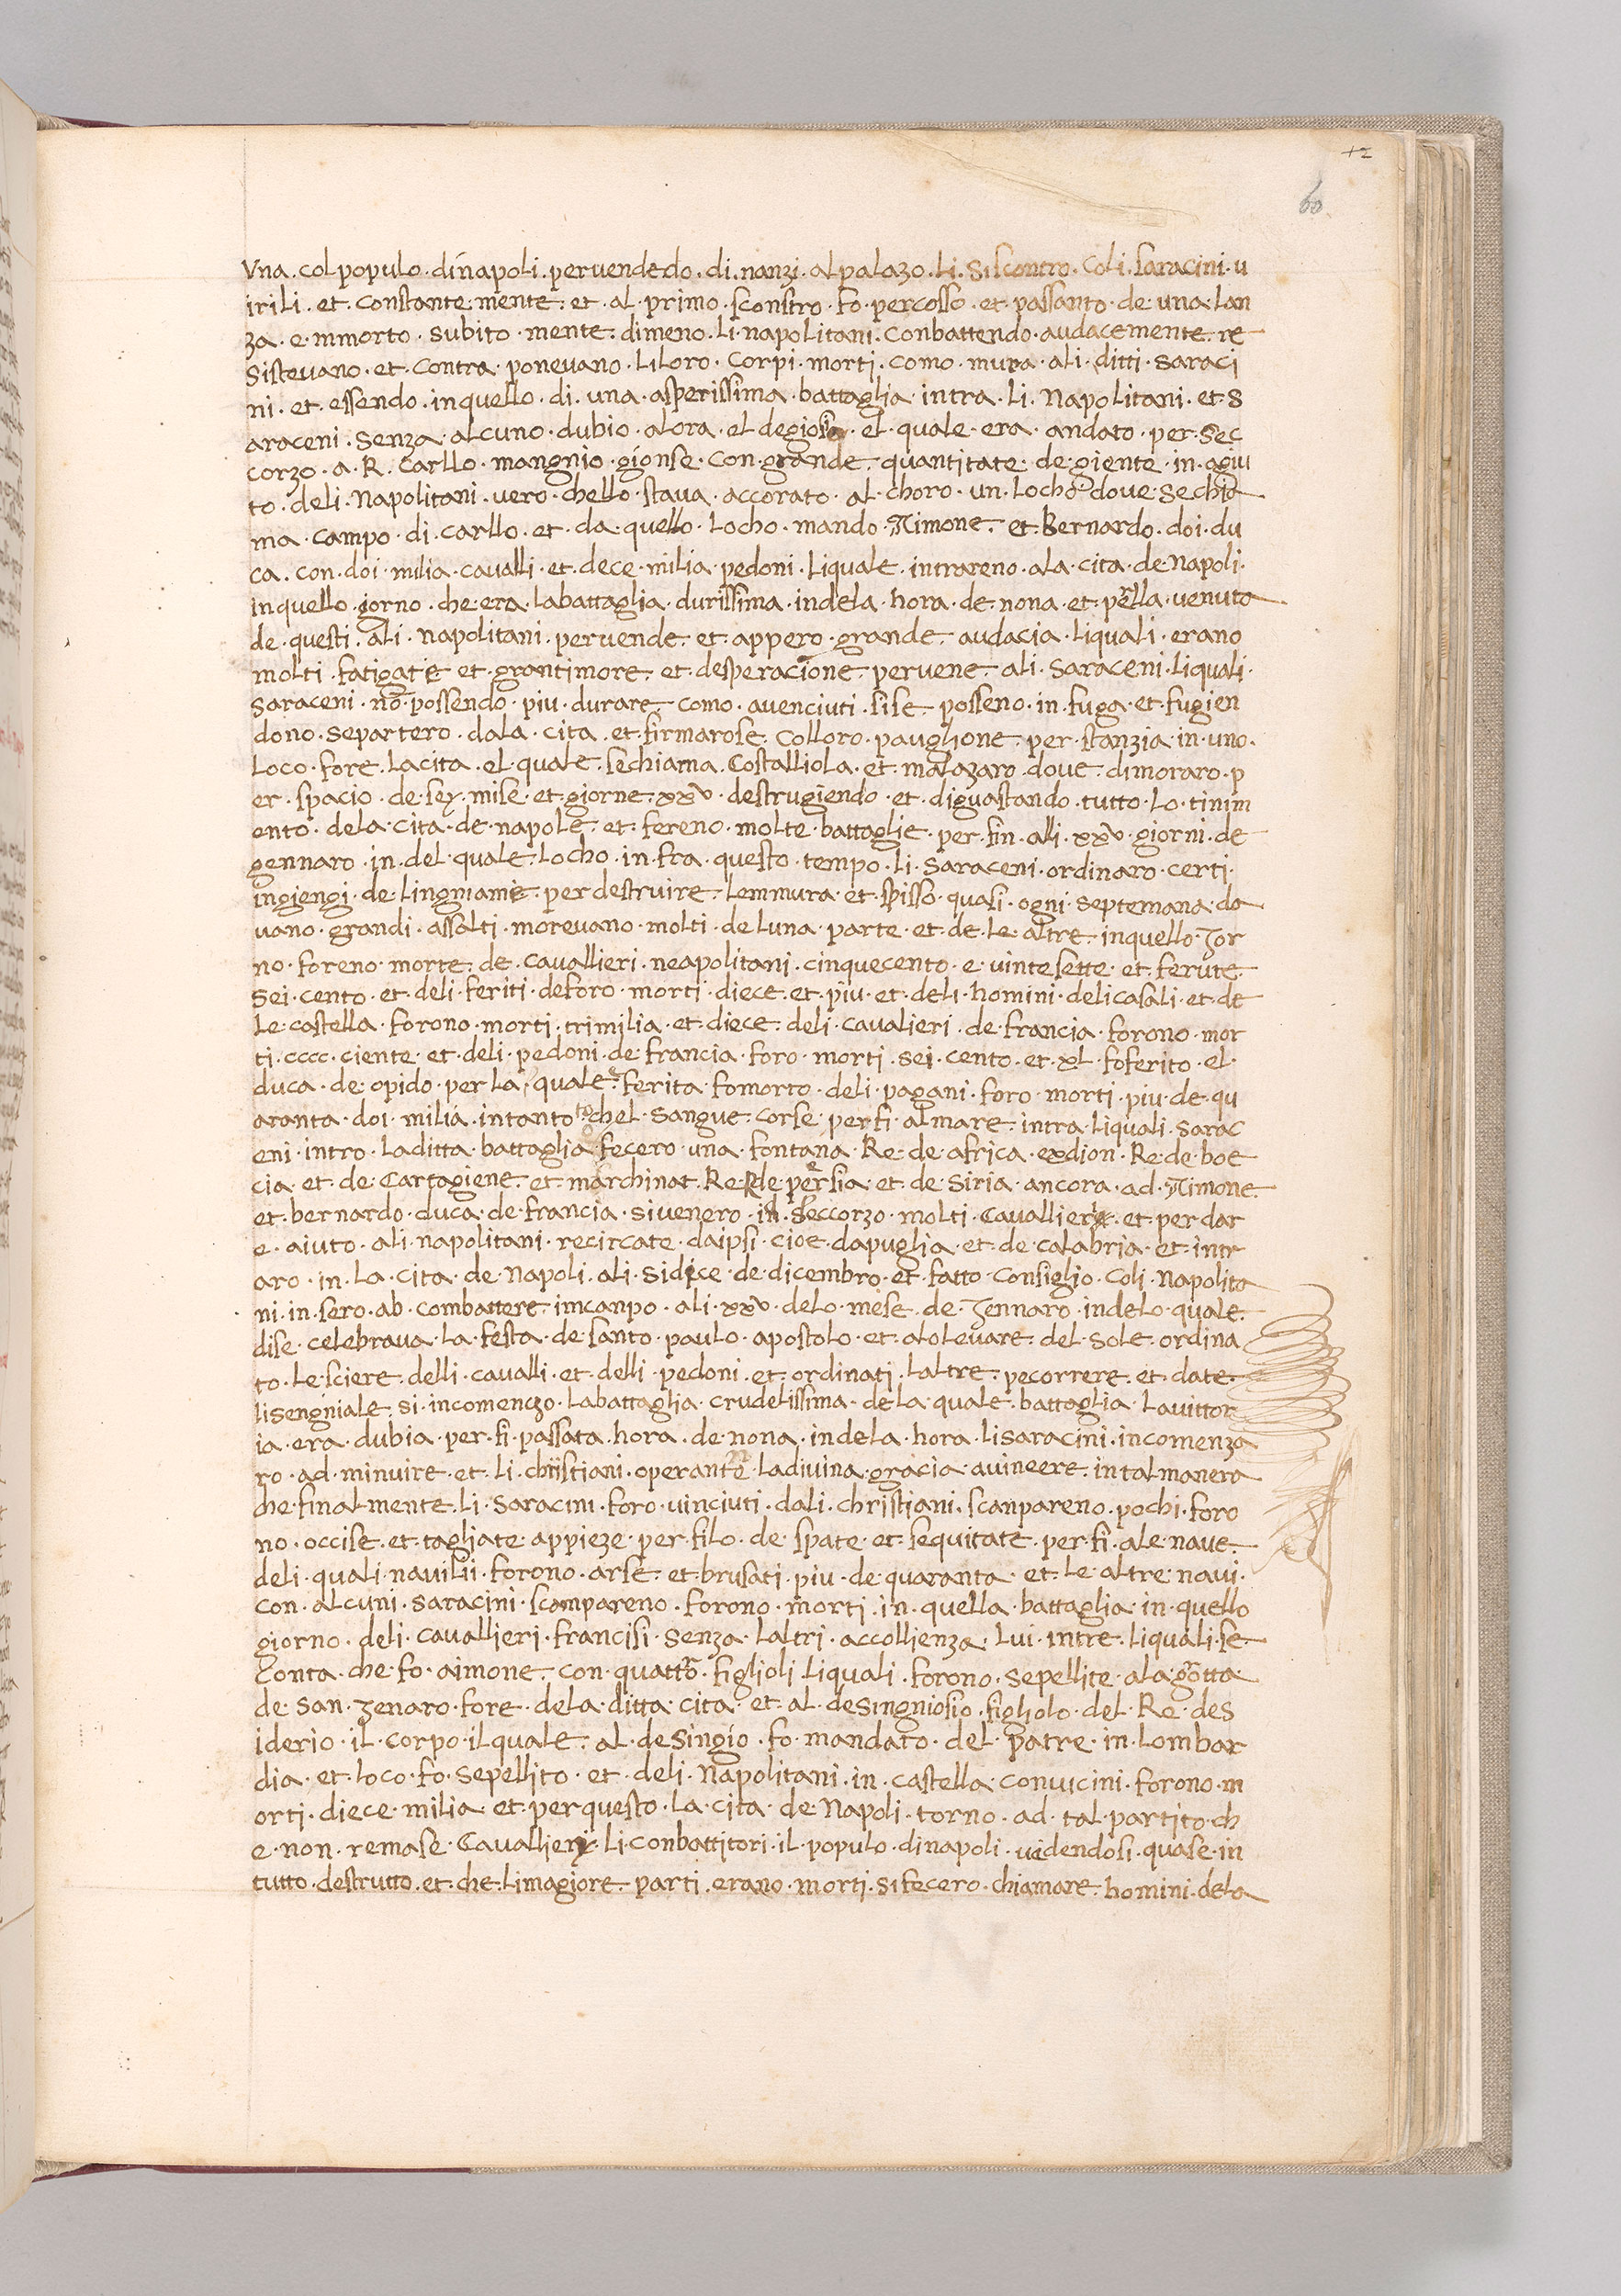 12
60
Vna . col populo . dinapoli . pervendedo . di . nanzi . al palazo . Li . Siscontro . Coli . saracini . u
irili . et . constante mente . et . al . primo . sconstro . fo . percosso . et . passanto . de . una . lan
za . e . mmorto . subito . mente . dimeno . li . napolitani . conbattendo . audacemente . re
sistevano . et . contra . ponevano . Liloro . corpi . morti . como . mura . ali . ditti . saraci
ni . et . essendo . inquello . di . una . asperissima . battaglia . intra . Li . Napolitani . et . s
araceni . senza . alcuno . dubio . alora . el degiosio . el . quale . era . andato . per . sec
corzo . a . R . carllo . mangnio . gionse . con . grande . quantitate . de . giente . in . agiu
to . deli . Napolitani . vero . chello . stava . accorato . al . choro . un . Locho . dove . se chia
ma . campo . di . carllo . et . da . quello . Locho . mando . Aimone . et . Bernardo . doi . du
ca . con . doi . milia . cavalli . et . dece . milia . pedoni . Liquale . intrareno . ala . cita . de Napoli .
inquello . giorno . che era . labattaglia . durissima . indela . hora . de . nona . et . per ella . venuta
de . questi . ali . napolitani . pervende . et . appero . grande . audacia . liquali . erano
molti . fatigate . et . grantimore . et . desperacione . pervene . ali . saraceni . liquali .
saraceni . nō . possendo . piu . durare . como . avenciuti . sise . posseno . in . fuga . et . fugien
dono . separtero . dala . cita . et . firmarose . colloro . pauglione . per . stanzia . in . uno .
Loco . fore . Lacita . el . quale . sechiama . Costalliola . et . malazaro . dove . dimoraro . p
er . spacio . de . sey . mise . et . giorne . xxv . destrugiendo . et . diguastando . tutto . lo . tinim
ento . dela . cita . de . napole . et . fereno . molte . battaglie . per . fin . alli . xxv . giorni . de
gennaro . in . del . quale . Locho . in . fra . questo . tempo . li . saraceni . ordinaro . certi .
ingiengi . de . lingniamie . per destruire . Lemmura . et . spisso . quasi . ogni . septemana . da
vano . grandi . assalti . morevano . molti . de luna . parte . et . de . le . altre . inquello . Jor
no . foreno . morte . de . cavallieri . neapolitani . cinquecento . e . vintesette . et . ferute
sei . cento . et . deli . feriti . deforo . morti . diece . et . piu . et . deli . homini . delicasali . et . de
Le . castella . forono . morti . trimilia . et . diece . deli . cavalieri . de . francia . forono . mor
ti . cccc . ciente . et . deli . pedoni . de . francia . foro . morti . sei . cento . et . xl . foferito . el .
duca . de . opido . per . la . quale . ferita . fomorto . deli . pagani . foro . morti . piu . de . qu
aranta . doi . milia . intanto to chel . sangue . corse . per fi . almare . intra . liquali . sarac
eni . intro . laditta . battaglia . fecero . una . fontana . Re . de . africa . exdion . Re . de . boe
cia . et . de . Cartagiene . et . marchinat . Re . de . persia . et . de . siria . ancora . ad . Aimone
et . bernardo . duca . de . francia . sivenero . in . seccorzo . molti . cavallieri . et . per dar
e . aiuto . ali . napolitani . recircate . daipsi . cioe . dapuglia . et . de . calabria . et . intr
aro . in . La . cita . de . Napoli . ali . sidece . de . dicembro . et . fatto . consiglio . coli . Napolita
ni . in . sero . ab . combattere . imcanpo . ali . xxv . delo . mese . de . Jennaro . indelo . quale
dise . celebrava . la . festa . de . santo . paulo . apostolo . et . alolevare . del . sole . ordina
to . le . sciere . delli . cavalli . et . delli . pedoni . et . ordinati . Laltre . pecorrere . et . date
lisengniale . si . incomenczo . labattaglia . crudelissima . dela . quale . battaglia . Lavittor
ia . era . dubia . per . fi . passata . hora . de . nona . indela . hora . lisaracini . incomenza
ro . ad . minuire . et . li . christiani . operante . ladivina . gracia . avincere . intal manera
che . finalmente . li . saracini . foro . vinciuti . dali . christiani . scanpareno . pochi . foro
no . occise . et . tagliate . appieze . per . filo . de . spate . et . sequitate . per . fi . ale . nave .
deli . quali . navilii . forono . arse . et . brusati . piu . de . quaranta . et . le . altre . navi .
con . alcuni . saracini . scampareno . forono . morti . in . quella . battaglia . in . quello
giorno . deli . cavallieri . francisi . senza . laltri . accollienza . Lui . intre . liquali . se
Conta . che . fo . aimone . con . quattro . figlioli . liquali . forono . sepellite . ala grotta
de . san . Jenaro . fore . dela . ditta . cita . et . al . desingniosio . figliolo . del . Re . des
iderio . il . corpo . ilquale . al . desingio . fo . mandato . del . patre . in . Lombar
dia . et . loco . fo . sepellito . et . deli . Napolitani . in . castella . convicini . forono . m
orti . diece . milia . et . perquesto . la . cita . de . Napoli . torno . ad . tal . partito . ch
e . non . remase . Cavallieri . li . conbattitori . il . populo . dinapoli . videndosi . quase . in
tutto . destrutto . et . che . limagiore . parti . erano . morti . si fecero . chiamare . homini . dela